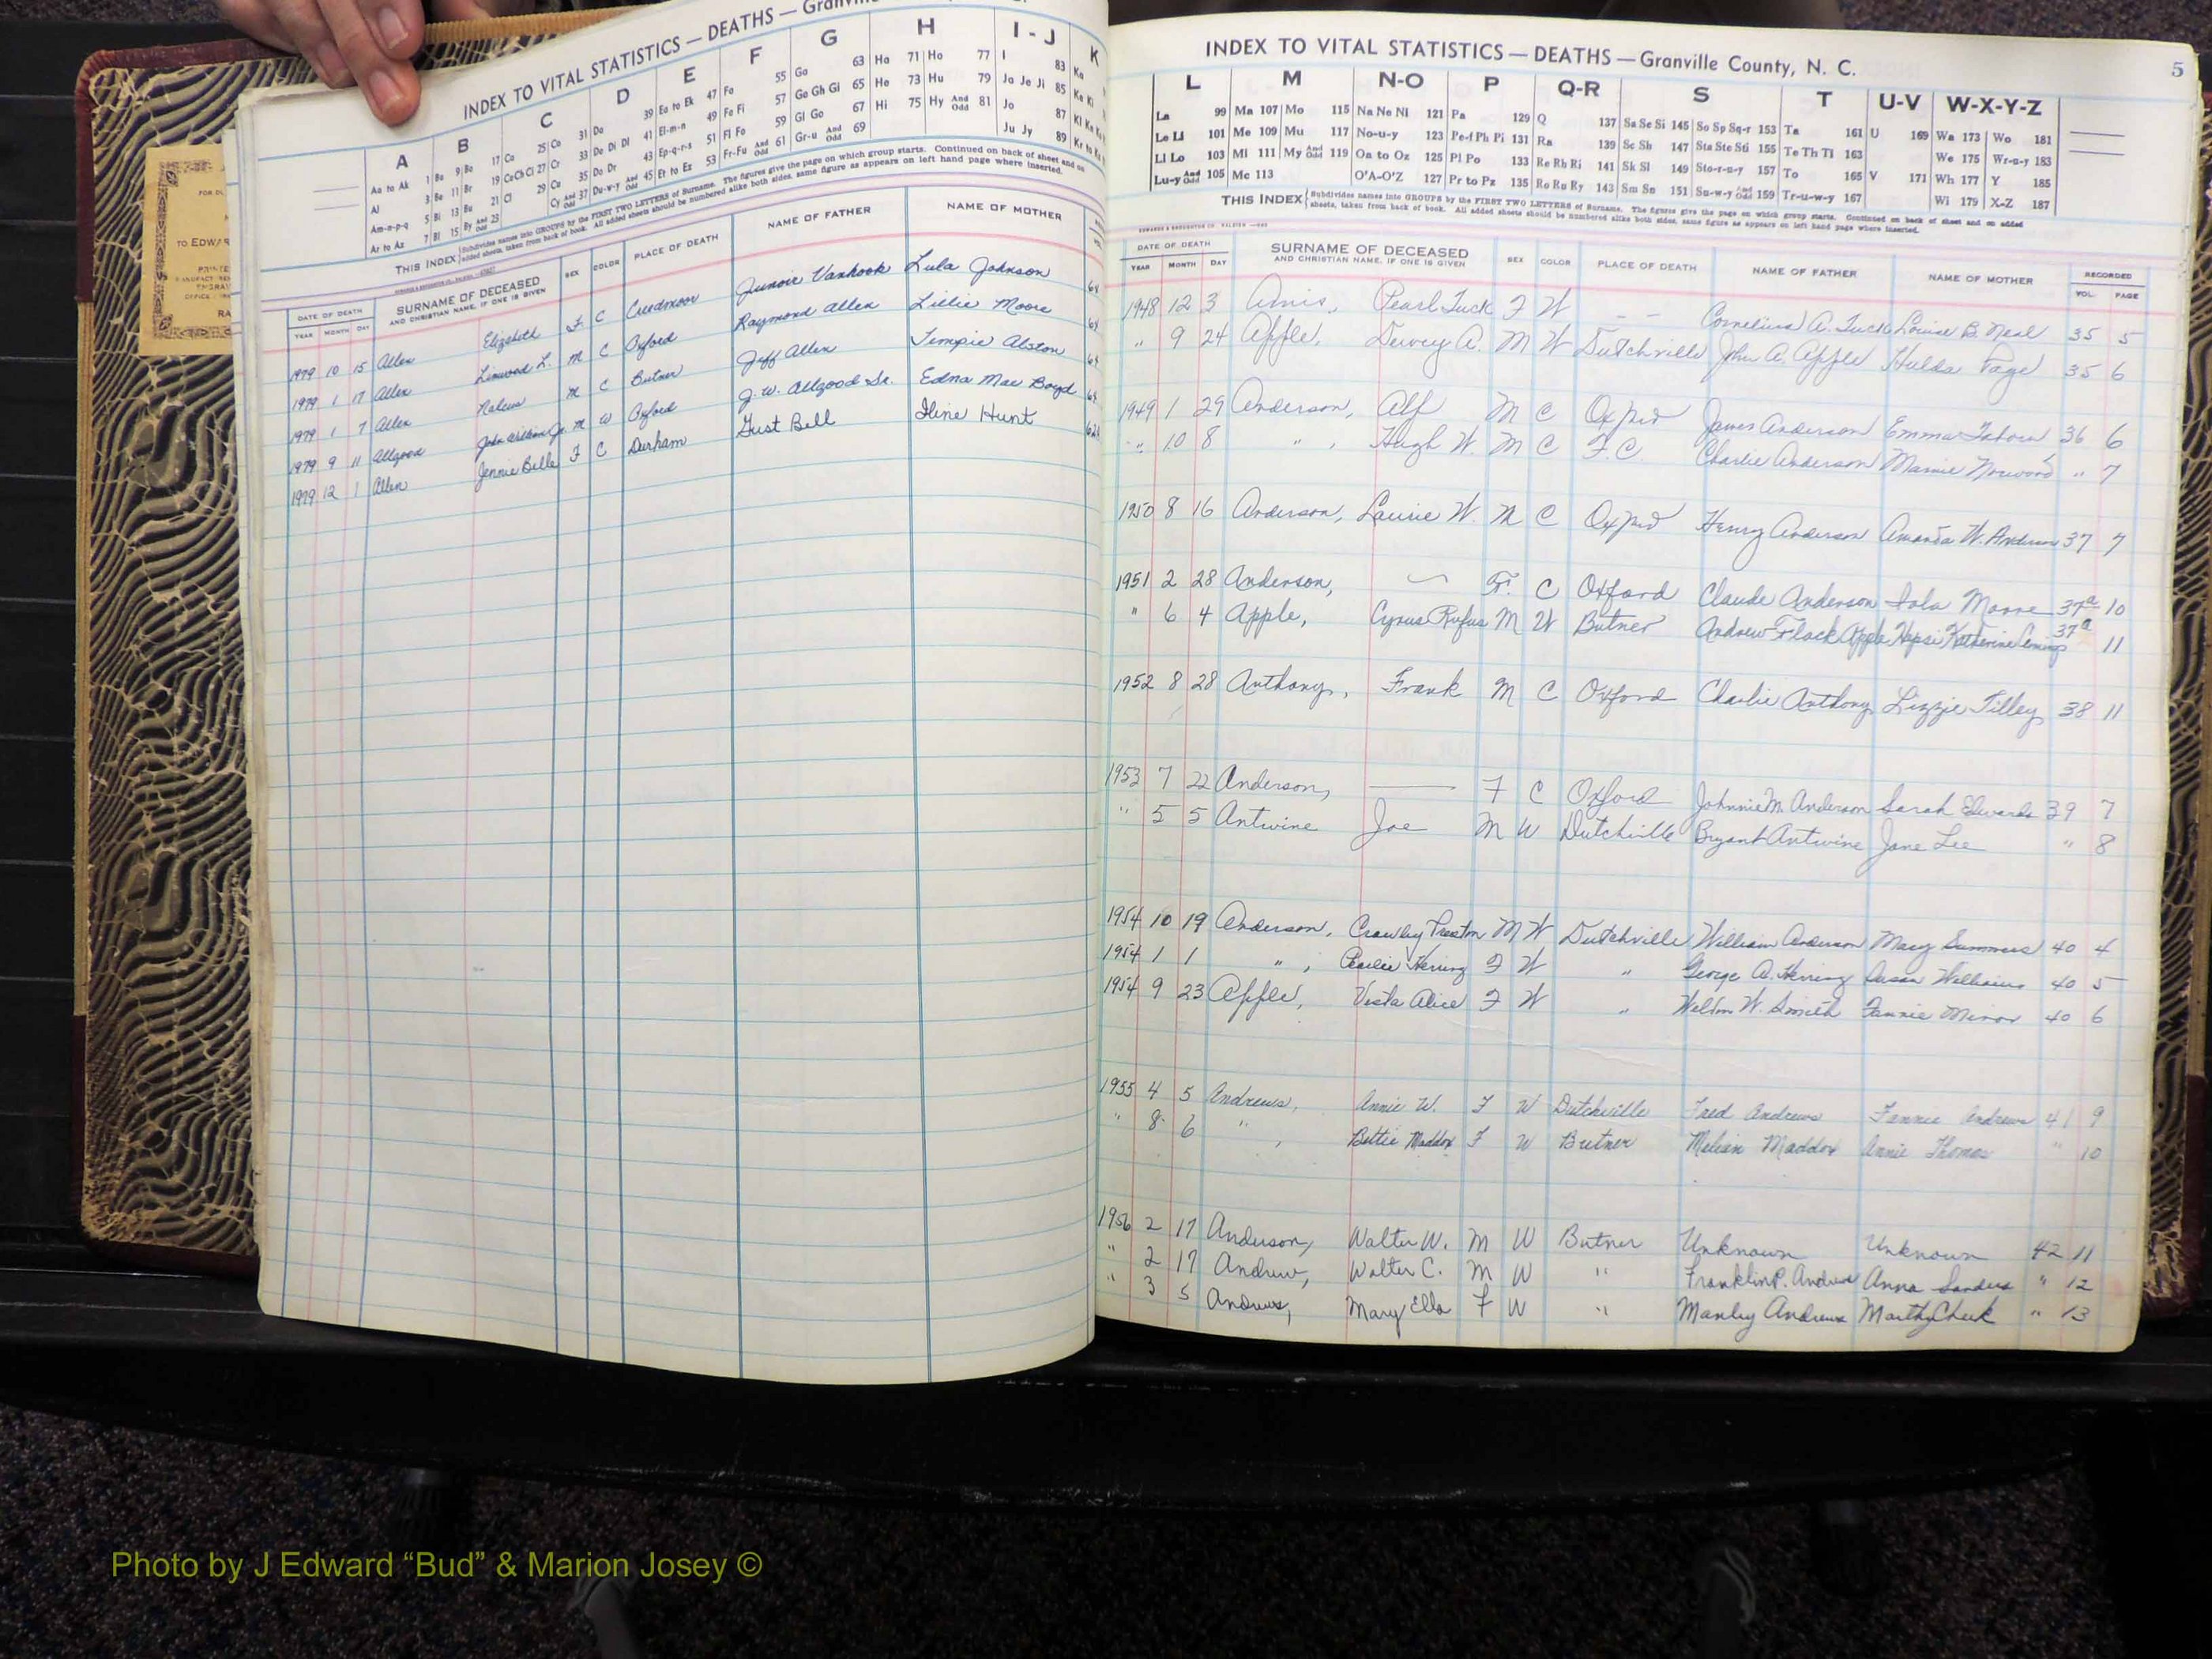 INDEX TO VITAL STATISTICS — DEATHS —
A B C D E F G H I - J K
Aa to Ak 1 Ba 9 Bo 17 Ca 25 Co 31 Da 39 Ea to Ek 47 Fa 55 Ga 63 Ha 71 Ho 77 I 83 Ka
Al 3 Be 11 Br 19 Ce Ch Ci 27 Cr 33 De Di Dl 41 El-m-n 49 Fe Fi 57 Ge Gh Gi 65 He 73 Hu 79 Ja Je Ji 85 Ke Ki
Am-n-p-q 5 Bi 13 Bu 21 Cl 29 Cu 35 Do Dr 43 Ep-q-r-s 51 Fl Fo 59 Gl Go 67 Hi 75 Hy And Odd 81 Jo 87
Ar to Az 7 Bl 15 By And Odd 23 Cy And Odd 37 Du-w-y And Odd 45 Et to Ez 53 Fr-Fu And Odd 61 Gr-u And Odd 69 Ju Jy 89
THIS INDEX Subdivides names into GROUPS by the FIRST TWO LETTERS of Surname. The figures give the page on which group starts. Continued on back of sheet and on added sheets, taken from back of book. All added sheets should be numbered alike both sides, same figure as appears on left hand page where inserted.
DATE OF DEATH YEAR MONTH DAY SURNAME OF DECEASED AND CHRISTIAN NAME, IF ONE IS GIVEN SEX COLOR PLACE OF DEATH NAME OF FATHER NAME OF MOTHER
1979 10 15 Allen Elizabeth F C Creedmoor Junoir Vanhook Lula Johnson
1979 1 17 Allen Linwood L. M C Oxford Raymond Allen Lillie Moore
1979 1 7 Allen M C Butner Jeff Allen Tempie Alston
1979 9 11 Allgood John William Jr. M W Oxford J. W. Allgood Sr. Edna Mae Boyd
1979 12 1 Allen Jennie Belle F C Durham Gust Bell Iline Hunt
INDEX TO VITAL STATISTICS — DEATHS — Granville County, N. C. 5
L M N-O P Q-R S T U-V W-X-Y-Z
La 99 Ma 107 Mo 115 Na Ne Ni 121 Pa 129 Q 137 Sa Se Si 145 So Sp Sq-r 153 Ta 161 U 169 Wa 173 Wo 181
Le Li 101 Me 109 Mu 117 No-u-y 123 Pe-f Ph Pi 131 Ra 139 Sc Sh 147 Sta Ste Sti 155 Te Th Ti 163 We 175 Wr-u-y 183
Ll Lo 103 Mi 111 My And Odd 119 Oa to Oz 125 Pl Po 133 Re Rh Ri 141 Sk Sl 149 Sto-r-u-y 157 To 165 V 171 Wh 177 Y 185
Lu-y And Odd 105 Mc 113 O'A-O'Z 127 Pr to Pz 135 Ro Ru Ry 143 Sm Sn 151 Su-w-y And Odd 159 Tr-u-w-y 167 Wi 179 X-Z 187
THIS INDEX Subdivides names into GROUPS by the FIRST TWO LETTERS of Surname. The figures give the page on which group starts. Continued on back of sheet and on added sheets, taken from back of book. All added sheets should be numbered alike both sides, same figure as appears on left hand page where inserted.
DATE OF DEATH YEAR MONTH DAY SURNAME OF DECEASED AND CHRISTIAN NAME, IF ONE IS GIVEN SEX COLOR PLACE OF DEATH NAME OF FATHER NAME OF MOTHER RECORDED VOL. PAGE
1948 12 3 Amis, Pearl Tuck F W - - Cornelius A. Tuck Louise B. Neal 35 5
" 9 24 Apple, Dewey A. M W Dutchville John A. Apple Hulda Faye 35 6
1949 1 29 Anderson, Alf M C Oxford James Anderson Emma 36 6
" 10 8 " , Hugh W. M C F.C. Charlie Anderson Mamie Norwood " 7
1950 8 16 Anderson, Laurie W. M C Oxford Henry Anderson Amanda W. Anderson 37 7
1951 2 28 Anderson, — F. C Oxford Claude Anderson Iola Moore 37a 10
" 6 4 Apple, Cyrus Rufus M W Butner Andrew Flack Apple Hepsi Katherine 37a 11
1952 8 28 Anthony, Frank M C Oxford Charlie Anthony Lizzie Tilley 38 11
1953 7 22 Anderson, — F C Oxford Johnnie M. Anderson Sarah Edwards 39 7
" 5 5 Antwine Joe M W Dutchville Bryant Antwine Jane Lee " 8
1954 10 19 Anderson, Crowley Preston M W Dutchville William Anderson Mary Summers 40 4
1954 1 1 " , Herring F W " George A. Herring Susan Williams 40 5
1954 9 23 Apple, Vista Alice F W " Welton W. Smith Fannie Minor 40 6
1955 4 5 Andrews, Annie W. F W Dutchville Fred Andrews Fannie Andrews 41 9
" 8 6 " , Bettie Maddox F W Butner Maddox Annie Thomas " 10
1956 2 17 Anderson, Walter W. M W Butner Unknown Unknown 42 11
" 2 17 Andrew, Walter C. M W " Franklin P. Andrews Anna Sanders " 12
" 3 5 Andrews, Mary Ella F W " Manly Andrews Marthy Cheek " 13
Photo by J Edward “Bud” & Marion Josey ©